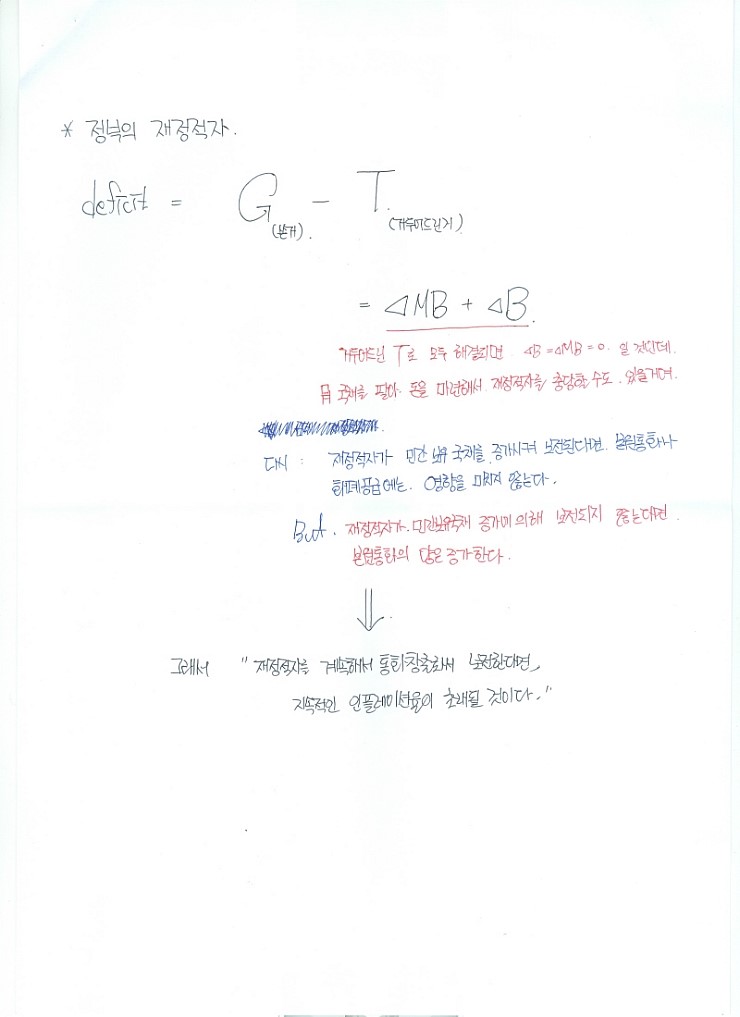 * 정부의 재정적자.
deficit = G - T.
(쓴거). (거두어드린거)
= △MB + △B.
거두어드린 T로 모두 해결되면 △B = △MB = 0. 일 것인데.
국채를 팔아 돈을 마련해서. 재정적자를 충당할 수도. 있을거며.
다시 : 재정적자가 민간 보유 국채를 증가시켜 보전된다면. 본원통화나
화폐공급에는. 영향을 미치지 않는다.
But. 재정적자가. 민간보유국채 증가에 의해 보전되지 않는다면.
본원통화의 양은 증가한다.
⇓
그래서 " 재정적자를 계속해서 통화창출화해서 보전한다면,
지속적인 인플레이션율이 초래될 것이다. "